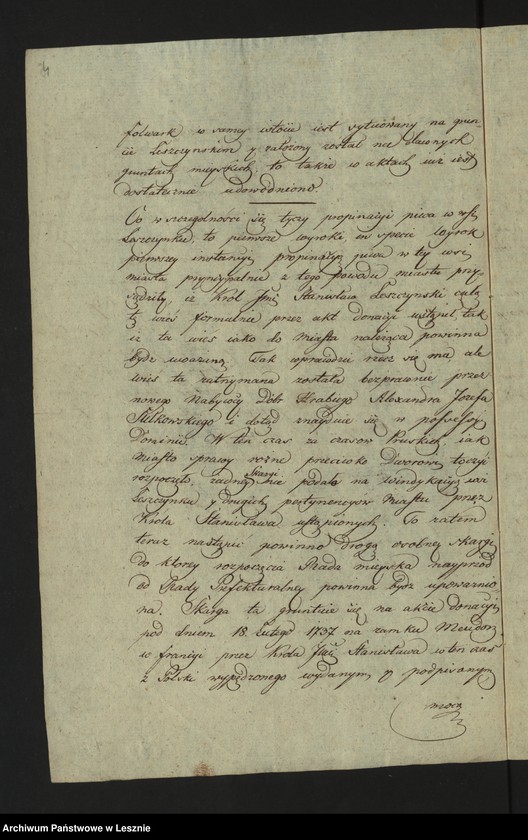 folwark w samey istocie iest sytuowany na grun-
cie Leszczynskim y założony został na dawnych
gruntach mieyskich, to także w aktach iuż iest
dostatecznie udowodniono.
Co w szczegolnosci się tyczy propinacyi piwa w wsi
Leszczynku, to pierwsze wyroki, in specie wyrok
pierwszey instancyi propinacyą piwa w tey wsi
miastu pryncypalnie z tego powodu miastu przy-
sądziły, iż Król Jmć Stanisław Leszczynski całą
tę wieś formalnie przez akt donacyi ustąpił, tak
iż ta wieś iako do Miasta należąca powinna
bydź uważaną. Tak wprawdzie rzecz się ma, ale
wieś ta zatrzymana została bezprawnie przez
nowego Nabywcę Dóbr Hrabiego Alexandra Jozefa
Sułkowskiego i dotąd znayduie się w possessyi
Dominii. W ten czas za czasow Pruskich, iak
Miasto sprawy rożne przeciwko Dworowi toczyć
rozpoczęło, żadney Skargi nie podało na windykacyą wsi
Leszczynku y drugich pertynencyow Miastu przez
Króla Stanisława ustąpionych. To zatem
teraz nastąpić powinno drogą osobney skargi,
do ktorey rozpoczęcia Rada mieyska nayprzod
od Rady Prefekturalney powinna bydź upoważnio
na. Skarga ta gruntuie się na akcie donacyi,
pod dniem 18. Lutego 1737 na zamku Meudon
w francyi przez Króla Jmć Stanisława w ten czas
z Polski wypędzonego wydanym y podpisanym,
mocą
Archiwum Państwowe w Lesznie